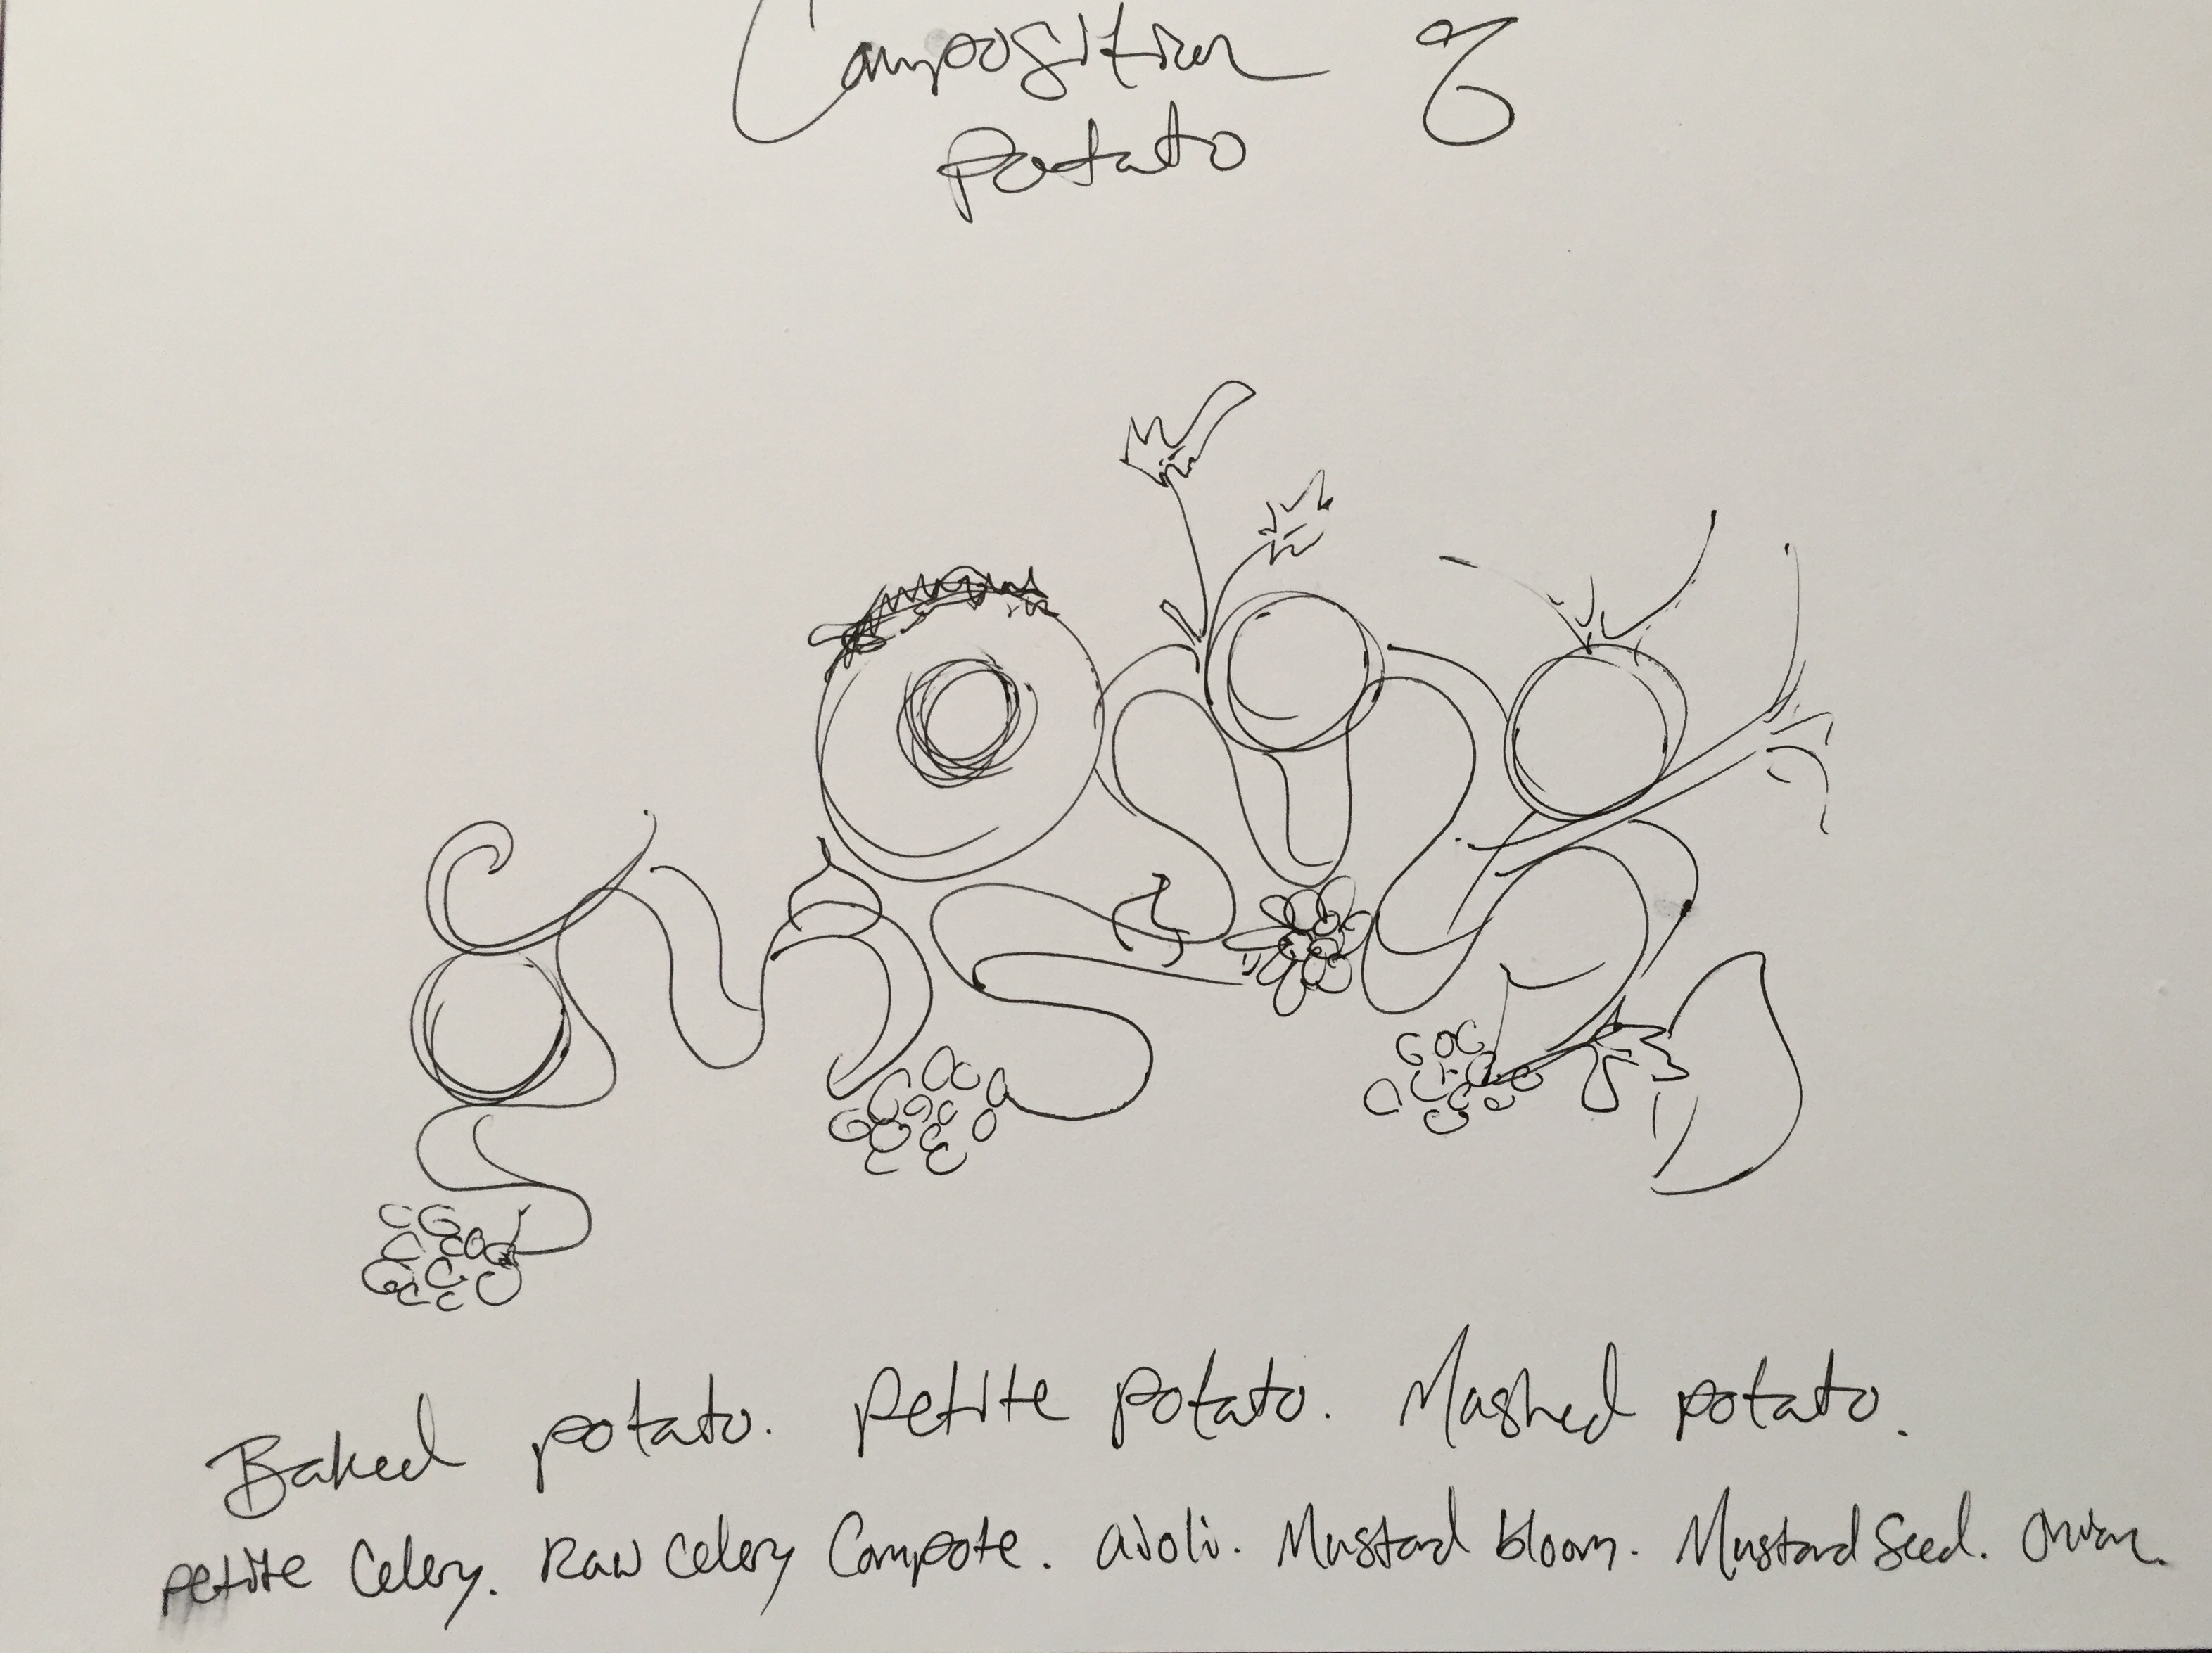 Composition of
Potato
Baked potato. Petite potato. Mashed potato.
petite Celery. Raw Celery Compote. aioli. Mustard bloom. Mustard Seed. Onion.